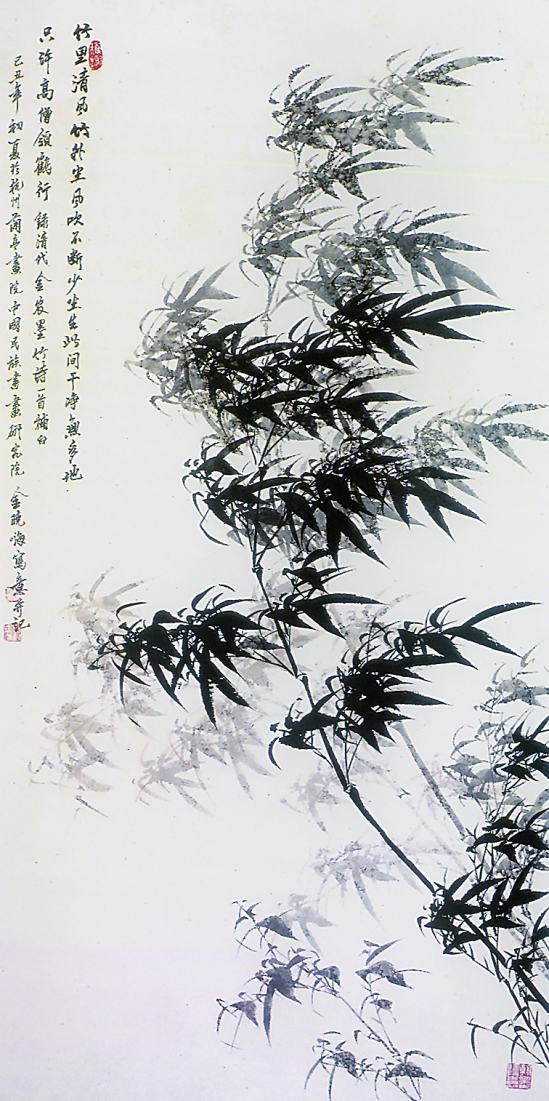 竹里清风竹外尘风吹不断少尘生此间干净无多地
只许高僧领鹤行 录清代金农墨竹诗一首补白
己丑年初夏于杭州兰亭画院中国民族书画研究院 金晓海写意并记